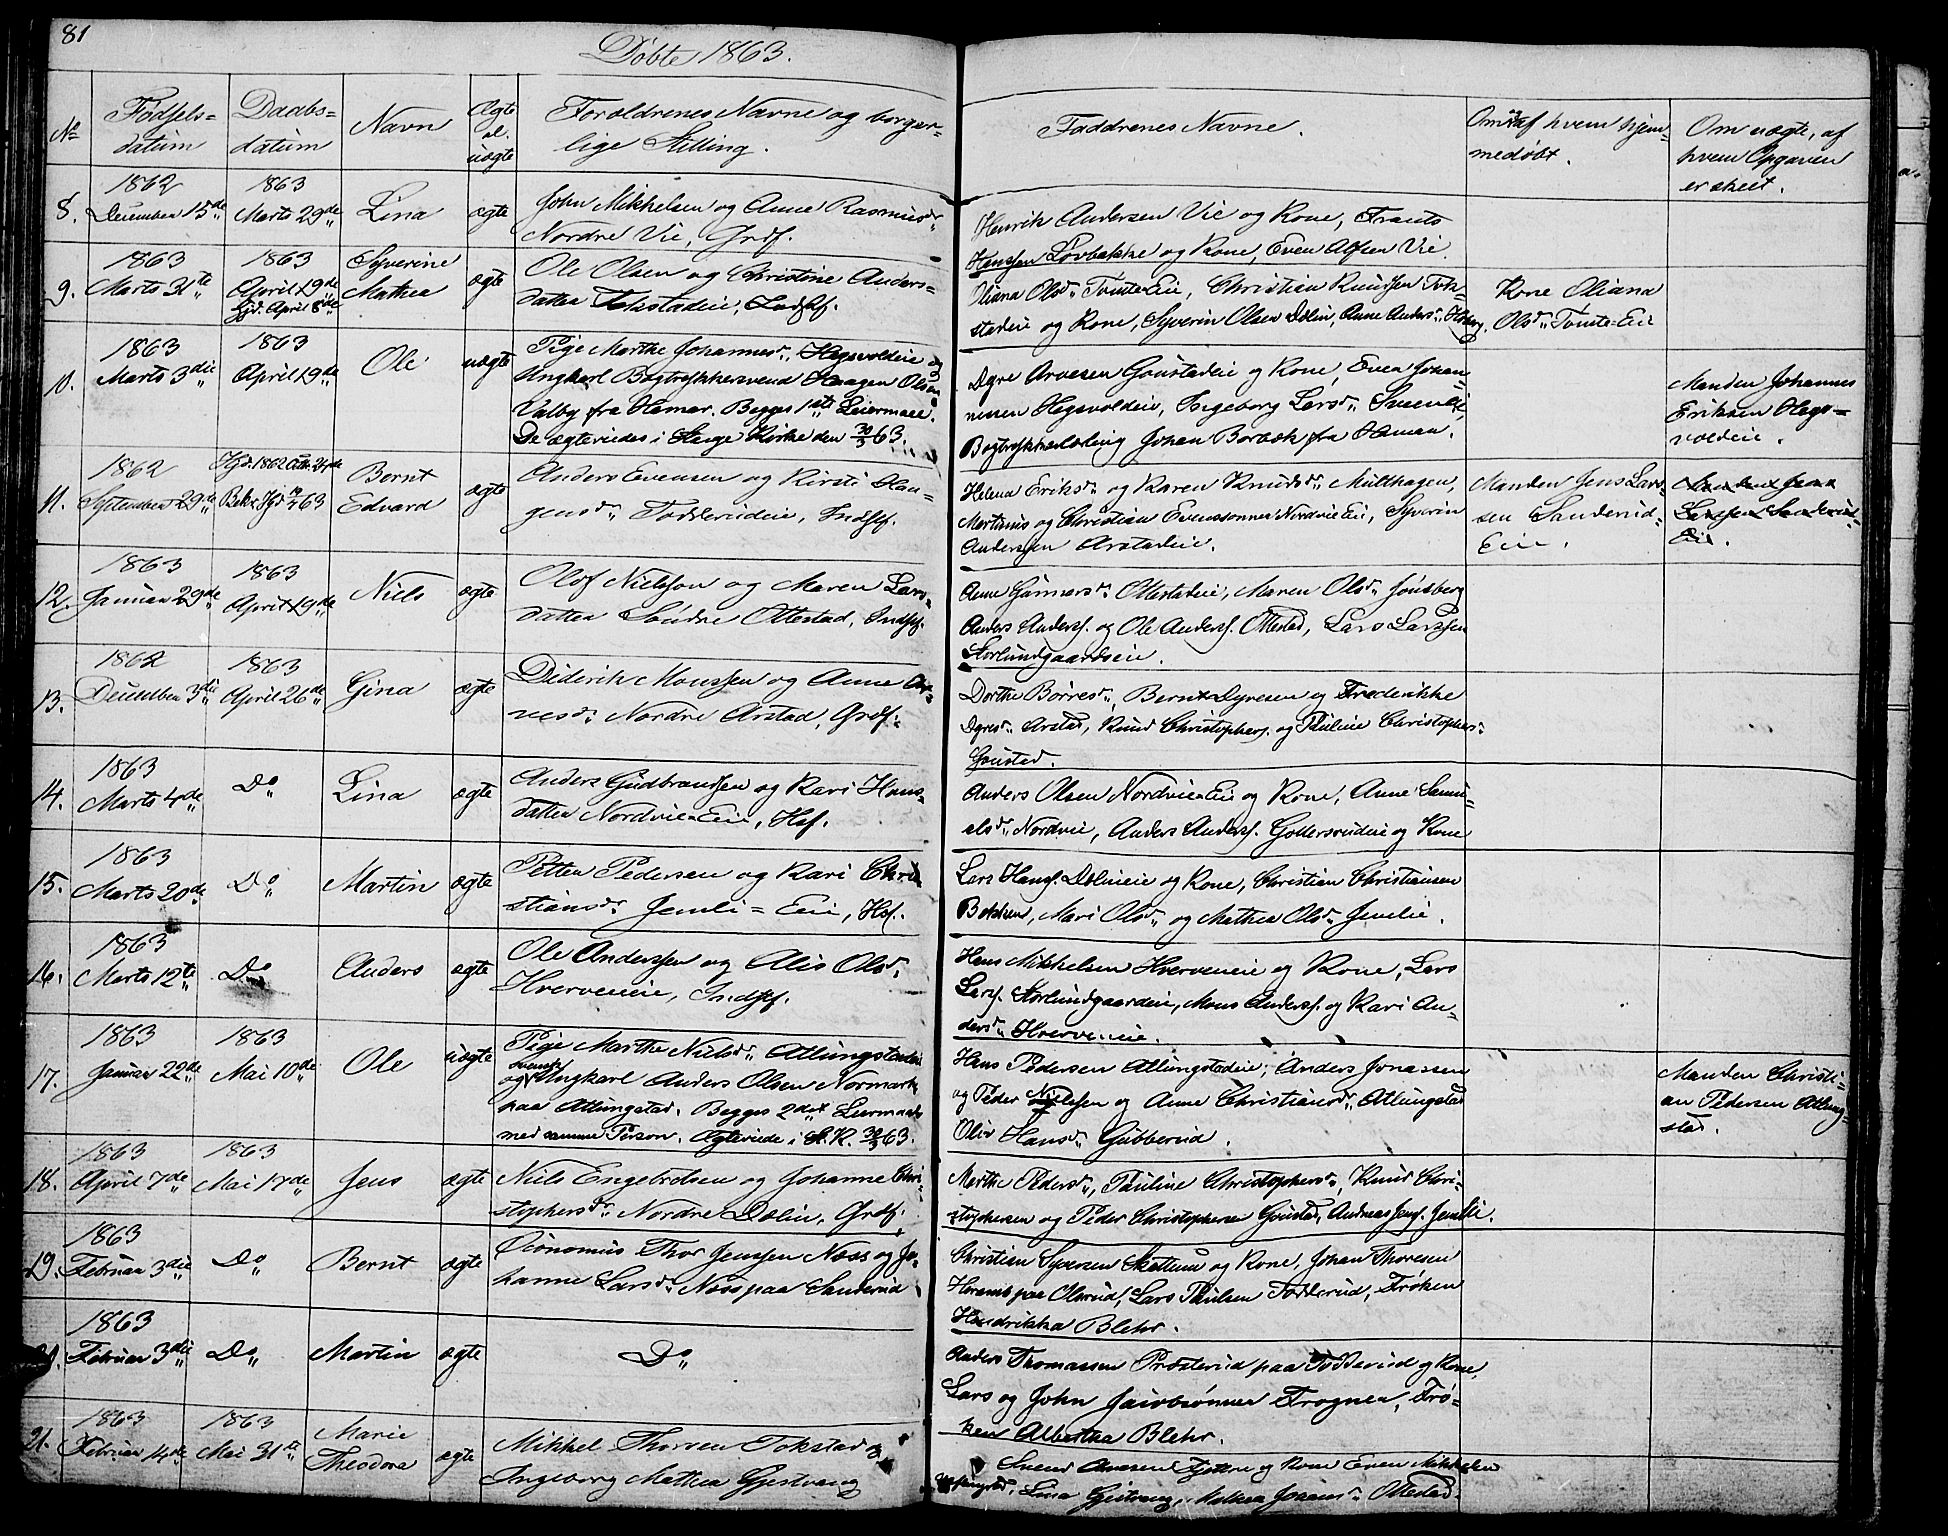 81
Døbte 1863.
No
Fødsels=
datum
Daabs=
datum
Navn
Ægte
el.
uægte
Forældrenes Navne og borger=
lige Stilling.
Faddrenes Navne.
Om og af hvem hjem=
medøbt.
Om uægte, af
hvem Opgaven
er skeet.
8.
1862
December 15de
1863
Marts 29de
Lina
ægte
John Mikkelsen og Anne Rasmusdr
Nordre Vie, Grdf.
Henrik Andersen Vie og Kone, Frants
Hanssen Løvbakke og Kone, Even Alfsen Vie.
9.
1863
Marts 31te
1863
April 19de
Hjd. April 8de
Syverine
Mathea
ægte
Ole Olsen og Christine Anders=
datter Tokstadeie, Indsf.
Oliana Olsdr Tomte-Eie, Christian Knudsen Tok=
stadeie og Kone, Syverin Olsen Dølin, Anne Andersdr
Kone Oliana
Olsdr Tomte-Eie
10.
1863
Marts 3die
1863
April 19de
Ole
uægte
Pige Marthe Johannesdr Hegsvoldeie og
Ungkarl Bogtrykkersvend Haagen Olsen
Valby fra Hamar. Begges 1ste Leiermaal.
De ægteviedes i Stange Kirke den 30/3 63.
Dyre Arvesen Goustadeie og Kone, Even Johan=
nesen Hegsvoldeie, Ingeborg Larsdr
Bogtrykkerlærling Johan Borbæk fra Hamar.
Manden Johannes
Eriksen Hegs=
voldeie.
11.
1862
September 29de
Hjd. 1862 Octbr. 24de
Bekr. Hjd 19/4 63
Bernt
Edvard
ægte
Anders Evensen og Kirsti Haa=
gensdr Fodderudeie, Indsf.
Helena Eriksdr og Karen Knudsdr Multhagen,
Martinus og Christian Evenssønner Nordvie Eie, Syverin
Anderssen Arstadeie.
Manden Jens Lars=
sen Sanderud=
Eie.
Manden Jens
Larssen Sanderud=
Eie.
12.
1863
Januar 29de
1863
April 19de
Niels
ægte
Olof Nielsson og Maren Lars=
datter Søndre Ottestad, Indsf.
Anne Gunnersdr Ottestadeie, Maren Olsdr Jønsberg
Anders Anderss. og Ole Anderss. Ottestad, Lars Larssen
Storlundgaardseie.
13.
1862
December 3die
1863
April 26de
Gina
ægte
Diderik Monssen og Anne Ar=
vesdr Nordre Arstad, Grdf.
Dorthe Børresdr, Bernt Dyresen og Frederikke
Dyresdr Arstad, Knud Christophers. og Pauline Christophersdr
Goustad.
14.
1863
Marts 4de
Do
Lina
ægte
Anders Gudbrandsen og Kari Hans=
datter Nordvie Eie, Hsf.
Anders Olsen Nordvie Eie og Kone, Anne Samu=
elsdr Nordvie, Anders Anderss. Gottersrudeie og Kone
15.
1863
Marts 20de
Do
Martin
ægte
Petter Pedersen og Kari Chri
stiansdr Jemli=Eie, Hsf.
Lars Hanss. Dølineie og Kone, Christian Christiansen
Bekken, Mari Olsdr og Mathea Olsdr Jemlie.
16.
1863
Marts 12te
Do
Anders
ægte
Ole Anderssen og Alis Olsdr
Hverveneie, Indsf.
Hans Mikkelsen Hverveneie og Kone, Lars
Larss. Storlundgaardeie, Mons Anderss. og Kari An=
dersdr Hverveneie.
17.
1863
Januar 22de
1863
Mai 10de
Ole
uægte
Pige Marthe Nielsdr Atlungstadeie
og svensk Ungkarl Anders Olsen Normark
paa Atlungstad. Begges 2det Leiermaal
med samme Person. Ægteviede i S. K. 30/3 63.
Hans Pedersen Atlungstadeie, Anders Jonassen
og Peder Nielssen og Anne Christiansdr Atlungstad
Oliv Hansdr Gubberud.
Manden Christi=
an Pedersen Atlung=
stad.
18.
1863
April 7de
1863
Mai 17de
Jens
ægte
Niels Engebretsen og Johanne Chri=
stophersdr Nordre Dølin, Grdf.
Marthe Pedersdr, Pauline Christophersdr, Knud Chri=
stophersen og Peder Christophersen Goustad, Andreas Jenss. Jemlie.
19.
1863
Februar 3die
Do
Bernt
ægte
Oeionomus Thor Jenssen Næss og Jo=
hanne Larsdr Næss paa Sanderud
Christian Syversen Skettum og Kone, Johan Thoresen
Horem paa Olsrud, Lars Paulsen Fodderud, Frøken
Hendrikka Blehr.
20.
1863
Februar 3die
Do
Martin
ægte
Do
Anders Thomassen Præsterud paa Fodderud og Kone,
Lars og John Jacobsønner Frogner, Frø=
ken Albertha Blehr.
21.
1863
Februar 14de
1863
Mai 31te
Marie
Theodora
ægte
Mikkel Thorsen Tokstad og
Ingeborg Mathea Gjestvang
Svend Arvesen Gyttre og Kone Even Mikkelsen
Lina Gjestvang, Mathea Johansdr Ottestad.